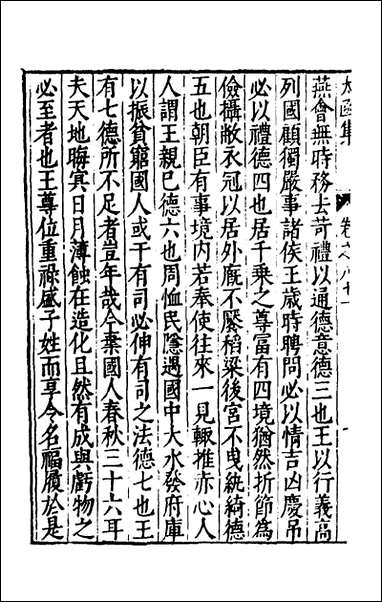 太函集 卷之八十一
燕會無時務去苛禮以通德意德三也王以行義高
列國顧獨嚴事諸侯王歲時聘問必以情吉凶慶吊
必以禮德四也居千乘之尊富有四境猶然折節為
儉攝敝衣冠以居外廐不饜稻粱後宮不曳紈綺德
五也朝臣有事境內若奉使往來一見輙推赤心人
人謂王親巳德六也周恤民隱遇國中大水發府庫
以振貧窮國人或干有司必伸有司之法德七也王
有七德所不足者豈年哉今棄國人春秋三十六耳
夫天地晦冥日月薄蝕在造化且然有成與虧物之
必至者也王尊位重祿盛子姓而享令名福履於是